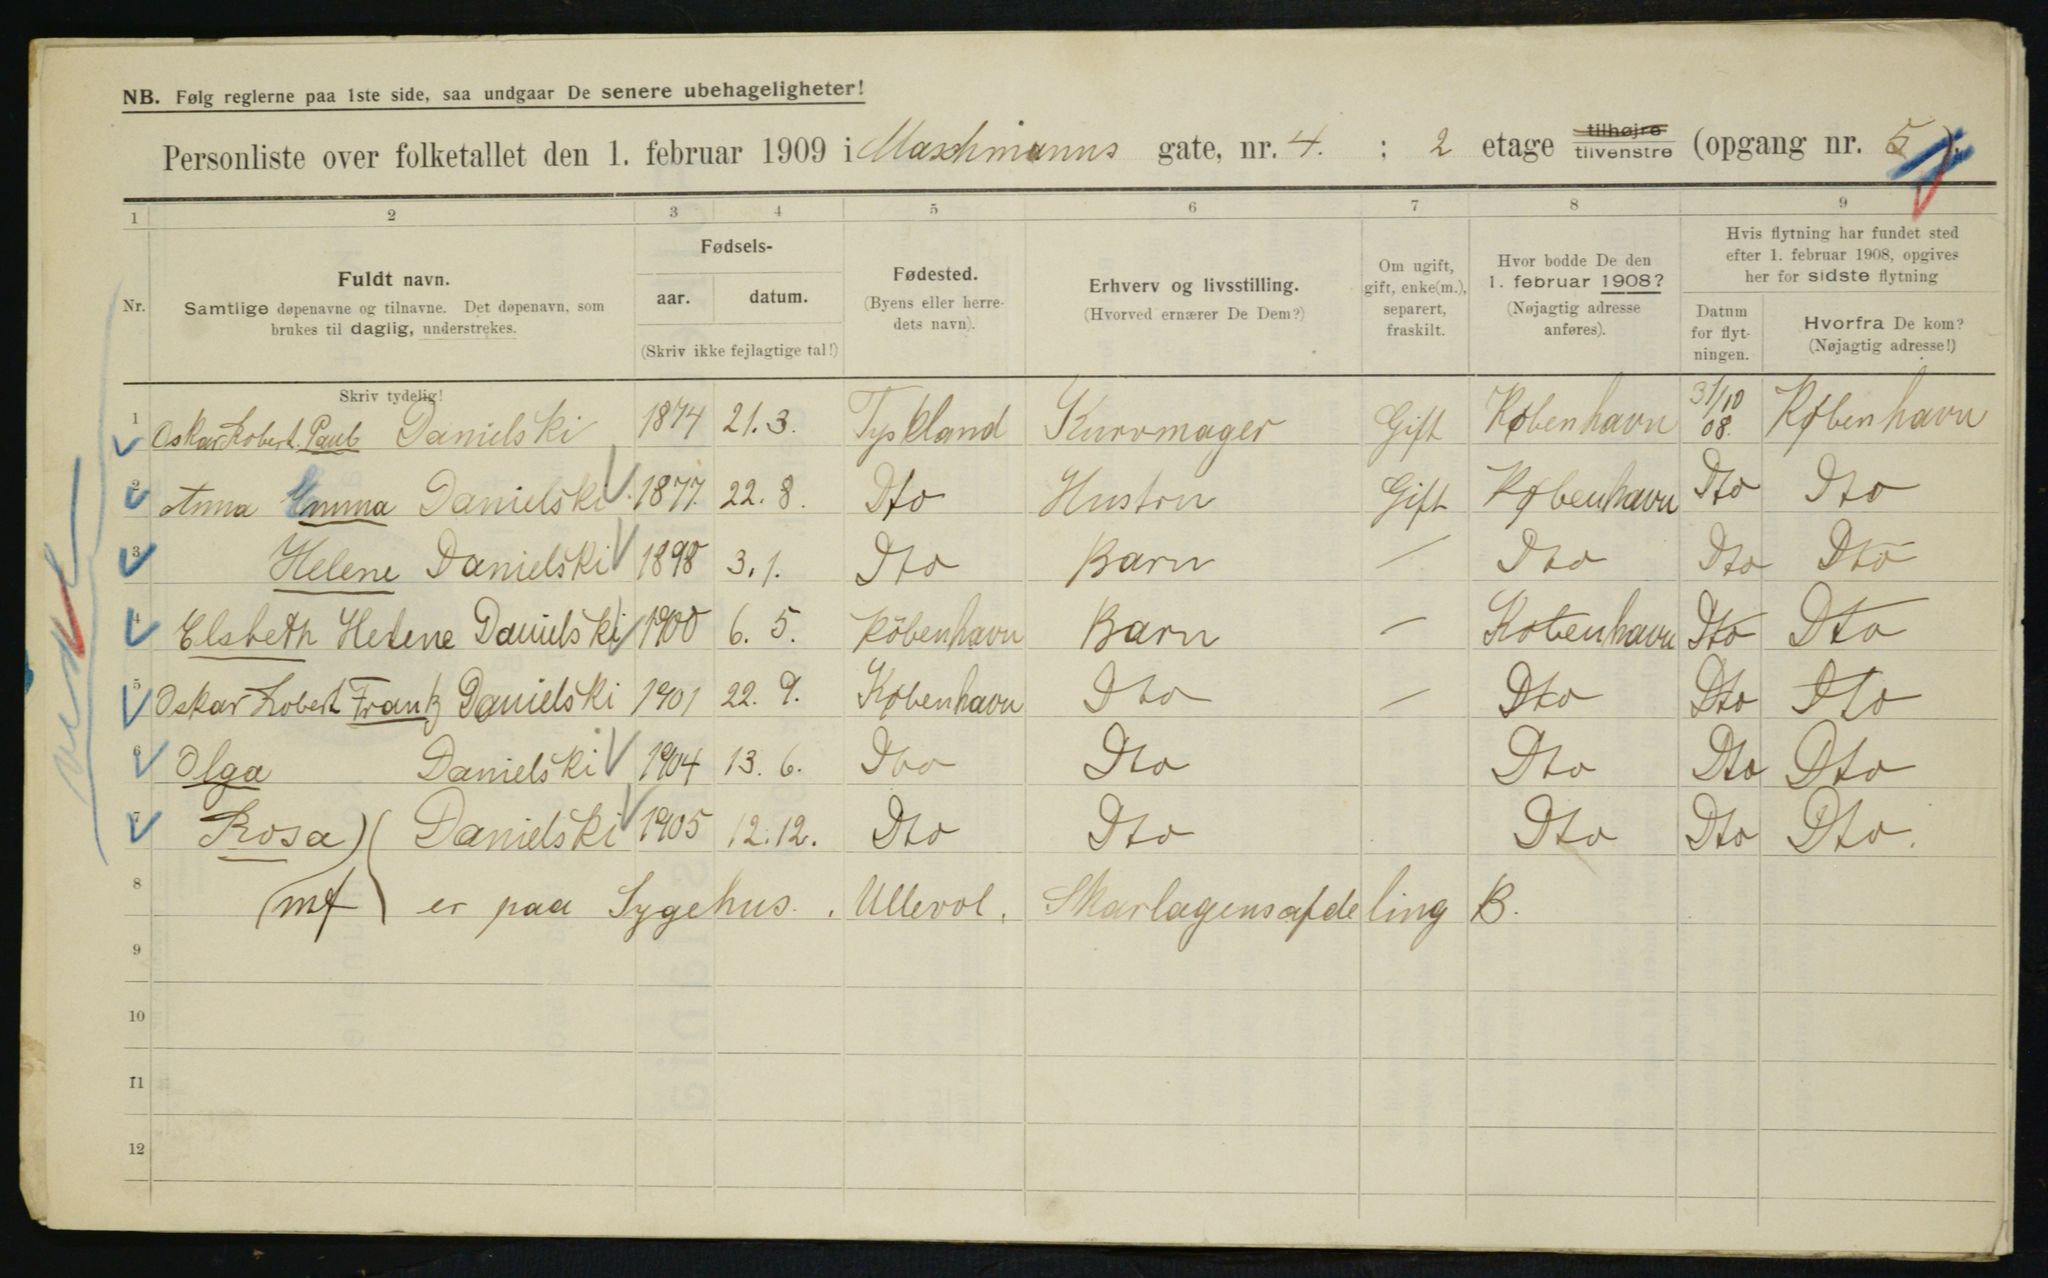 NB. Følg reglerne paa 1ste side, saa undgaar De senere ubehageligheter!
Personliste over folketallet den 1. februar 1909 i Maschmanns gate, nr. 4. : 2 etage tilhøjre tilvenstre (opgang nr. 5).
1 2 3 4 5 6 7 8 9
Nr.
Fuldt navn.
Samtlige døpenavne og tilnavne. Det døpenavn, som
brukes til daglig, understrekes.
Skriv tydelig!
Fødsels-
aar. datum.
(Skriv ikke fejlagtige tal!)
Fødested.
(Byens eller herre-
dets navn).
Erhverv og livsstilling.
(Hvorved ernærer De Dem?)
Om ugift,
gift, enke(m.),
separert,
fraskilt.
Hvor bodde De den
1. februar 1908?
(Nøjagtig adresse
anføres).
Hvis flytning har fundet sted
efter 1. februar 1908, opgives
her for sidste flytning
Datum
for flyt-
ningen.
Hvorfra De kom?
(Nøjagtig adresse!)
1 Oskar Robert Paul Danielski 1874 21.3. Tyskland Kurvmager Gift København 31/10 08. København
2 Anna Emma Danielski 1877. 22.8. Dto Hustru Gift København Dto Dto
3 Helene Danielski 1898 3.1. Dto Barn — Dto Dto Dto
4 Elsbeth Helene Danielski 1900 6.5. København Barn — København Dto Dto
5 Oskar Robert Frantz Danielski 1901 22.9. København Dto — Dto Dto Dto
6 Olga Danielski 1904 13.6. Dto Dto Dto Dto Dto
7 Rosa) ( Danielski 1905 12.12. Dto Dto Dto Dto Dto.
8 (mf) er paa Sygehus. Ullevol. Skarlagensafdeling B.
9
10
11
12